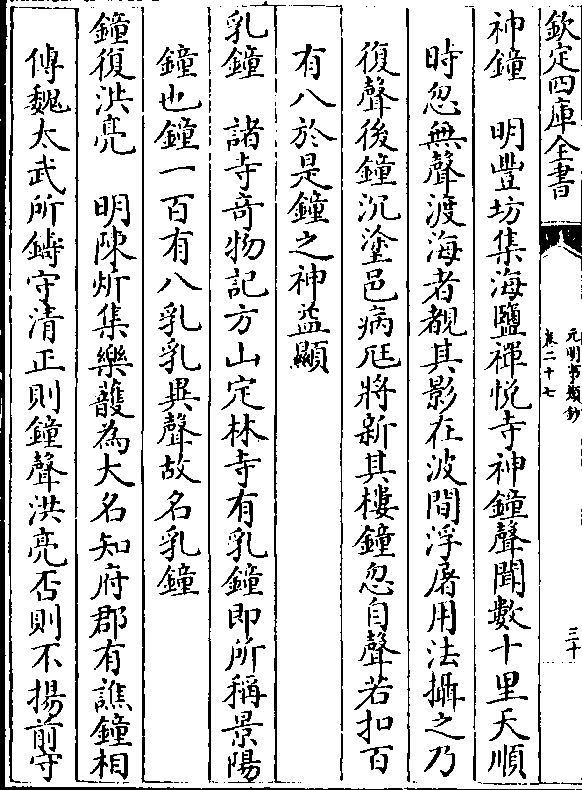 欽定四庫全書
元明事類鈔
卷二十七
三十
神鐘　明豐坊集海鹽禪悅寺神鐘聲聞數十里天順
時忽無聲渡海者覩其影在波間浮屠用法攝之乃
復聲後鐘沉塗邑病尫將新其樓鐘忽自聲若扣百
有八於是鐘之神益顯
乳鐘　諸寺奇物記方山定林寺有乳鐘即所稱景陽
鐘也鐘一百有八乳乳異聲故名乳鐘
鐘復洪亮　明陳炘集樂頀為大名知府郡有譙鐘相
傳魏太武所鑄守清正則鐘聲洪亮否則不揚前守